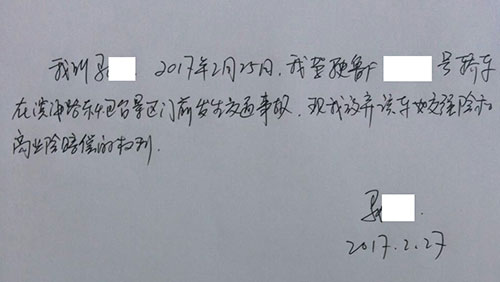 我叫马 . 2017年2月25日,我驾驶鲁F 号轿车
在滨海路东炮台景区门前发生交通事故,现我放弃该车 交强险和
商业险赔偿的权利.
马 .
2017.2.27